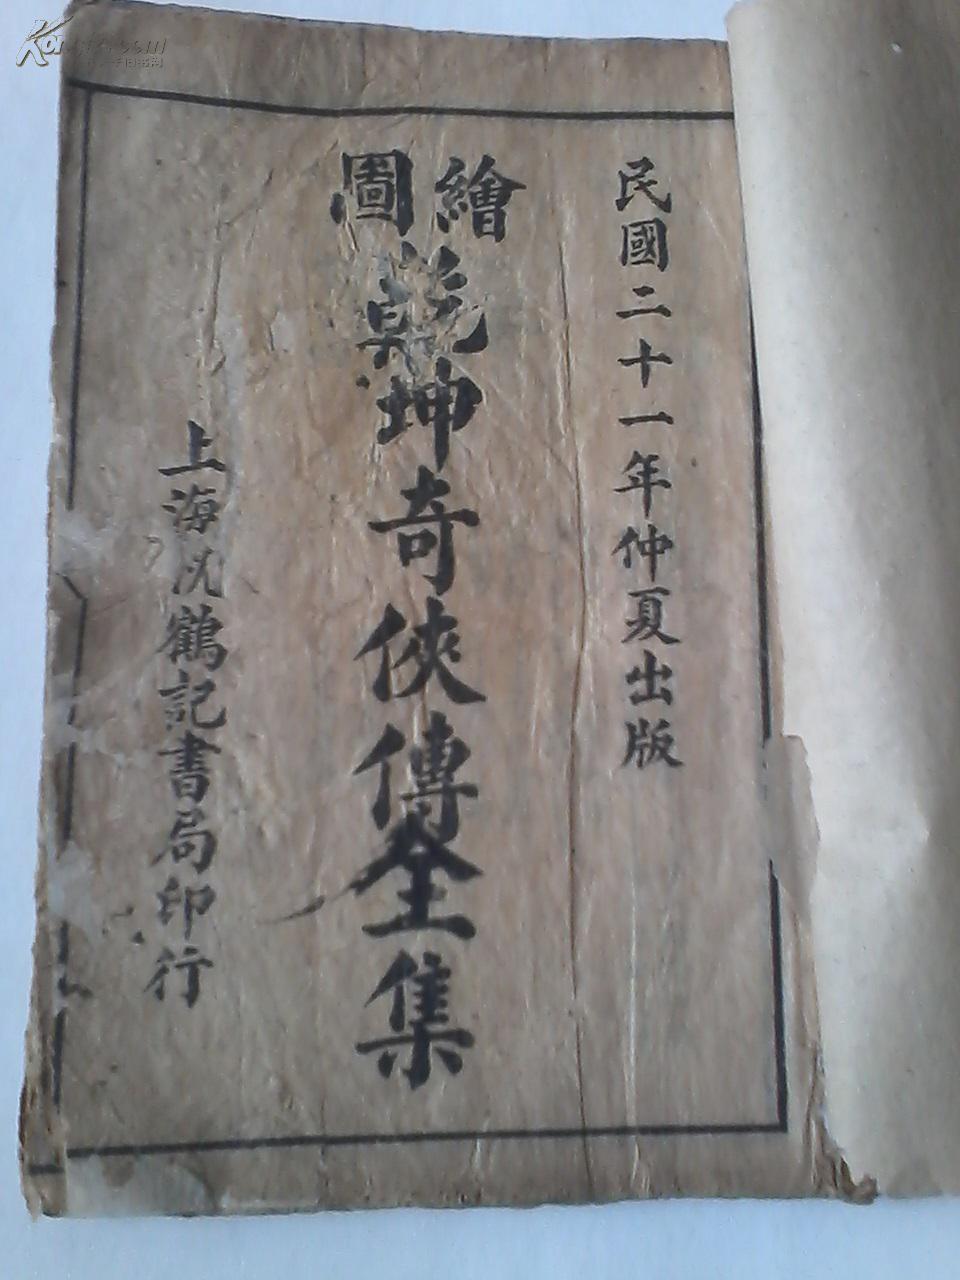 民國二十一年仲夏出版
繪圖
乾坤奇俠傳全集
上海沈鶴記書局印行